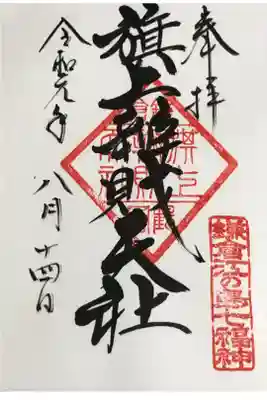 奉拝
旗上辨財天社
令和元年八月十四日
鎌倉江の島七福神